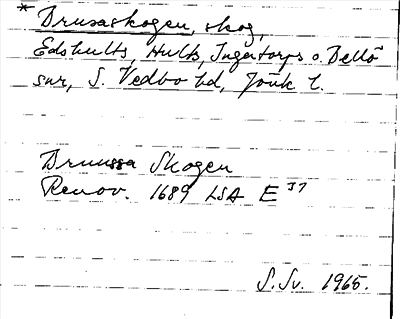 * Drusaskogen, skog,
Edshults, Hults, Ingatorps o. Bellö
snr, S. Vedbo hd, Jönk l.
Drussa Skogen
Renov. 1689 LSA E 37
S. Sv. 1965.